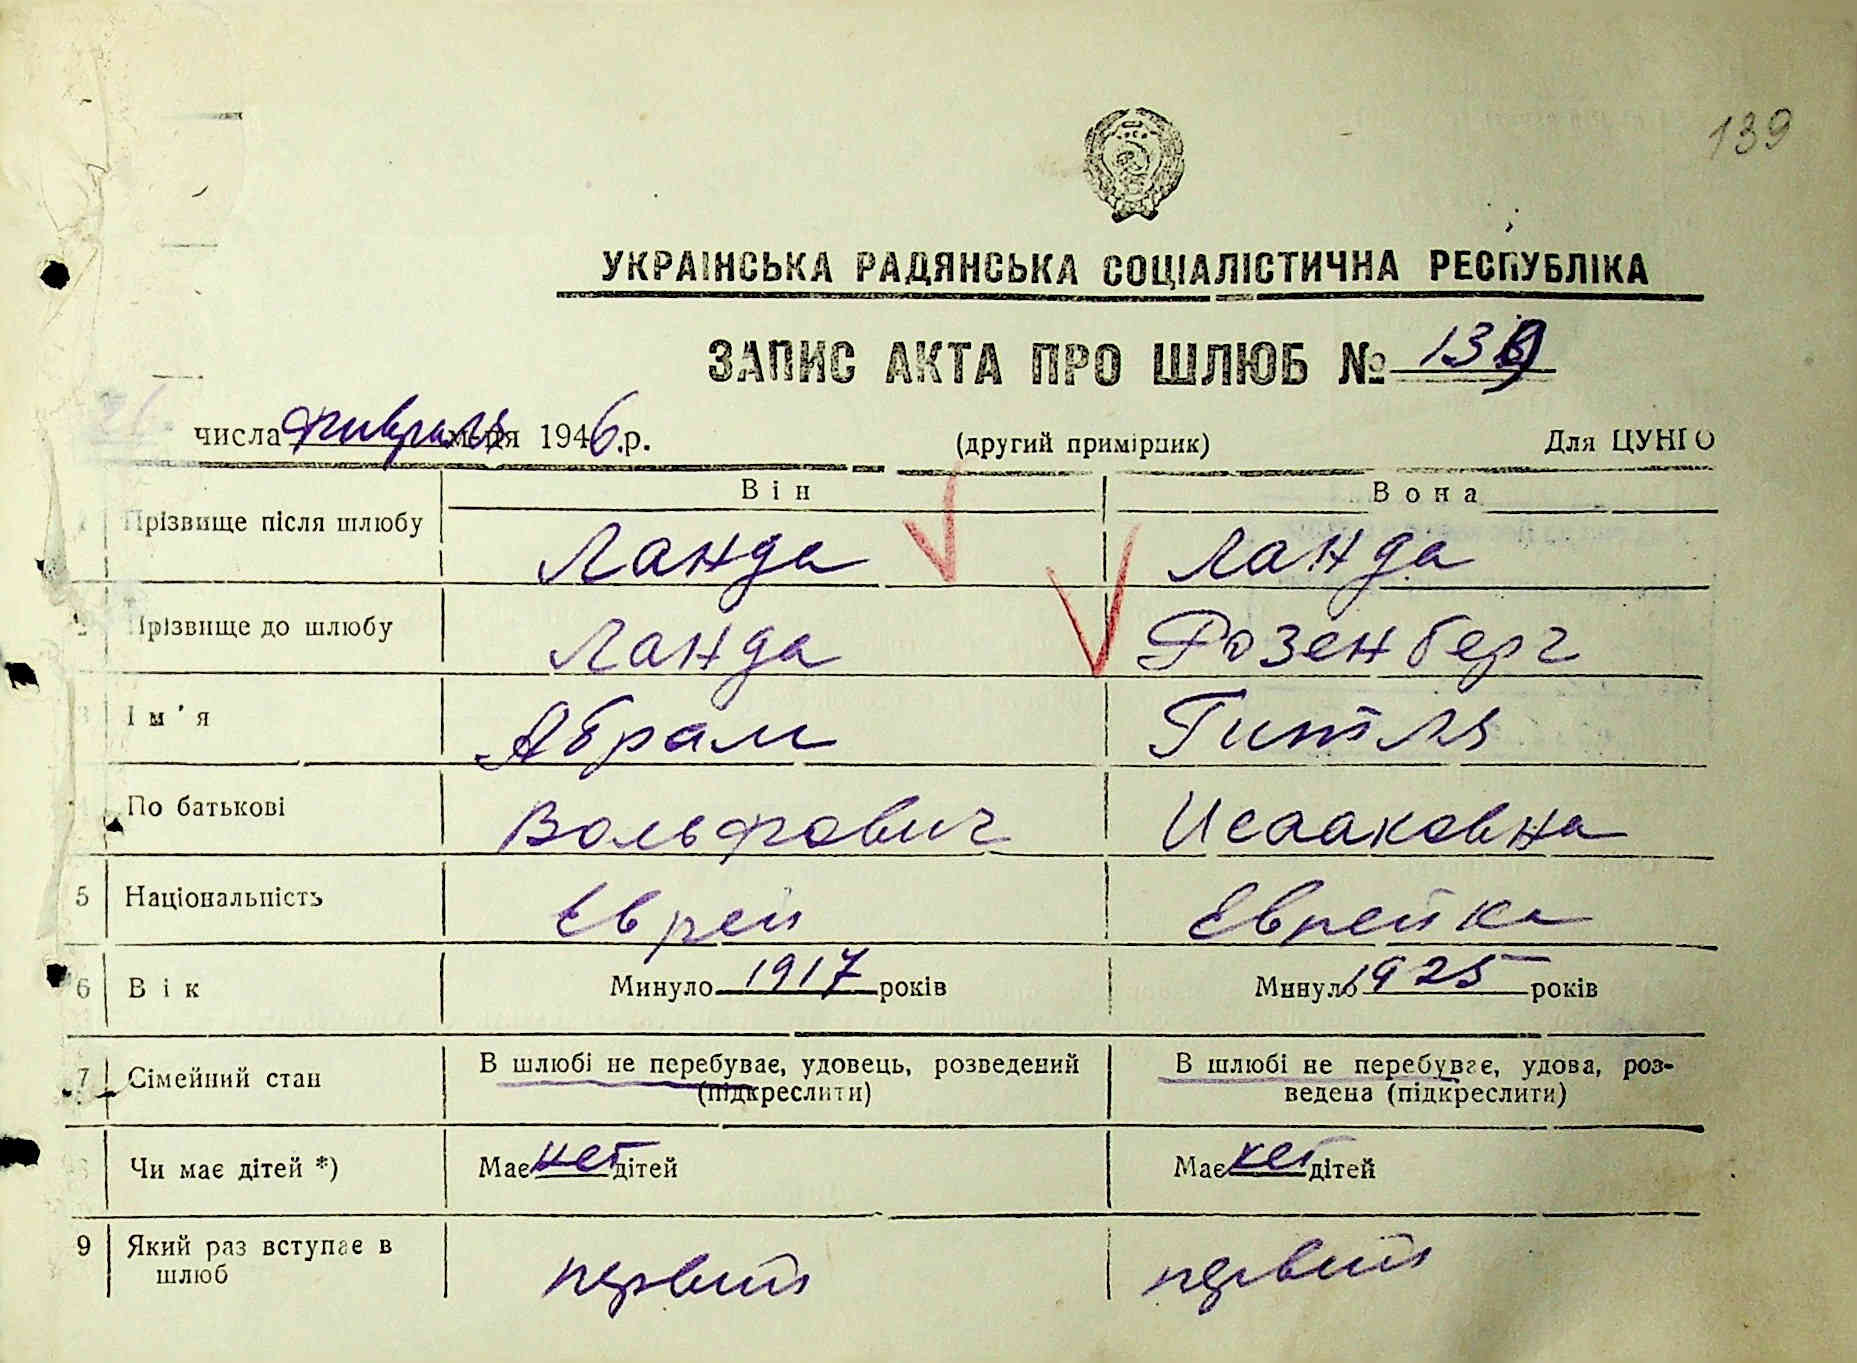 139
УКРАЇНСЬКА РАДЯНСЬКА СОЦІАЛІСТИЧНА РЕСПУБЛІКА
ЗАПИС АКТА ПРО ШЛЮБ № 139
числа февраля м-ця 1946 р. (другий примірник) Для ЦУНГО
Він Вона
Прізвище після шлюбу Ланда Ланда
2 Прізвище до шлюбу Ланда Розенберг
3 Ім'я Абрам Гитля
По батькові Вольфович Исааковна
5 Національність Еврей Еврейка
6 Вік Минуло 1917 років Минуло 1925 років
7 Сімейний стан В шлюбі не перебуває, удовець, розведений В шлюбі не перебуває, удова, роз-
(підкреслити) ведена (підкреслити)
8 Чи має дітей *) Має нет дітей Має нет дітей
9 Який раз вступає в
шлюб первый первый